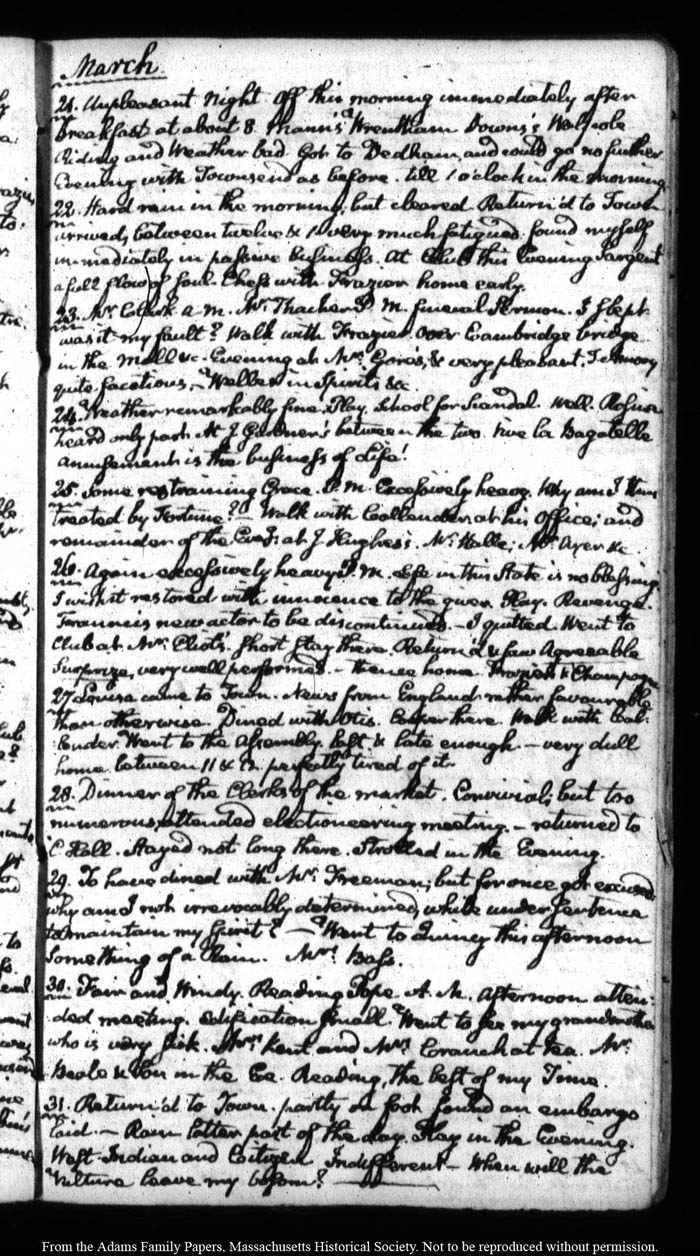 March
21. Unpleasant night off this morning immediately after
breakfast at about 8. Mann's Wrentham Downs's Walpole
Riding and Weather bad. Got to Dedham, and could go no further
Evening with Townsend as before. till 1 o'clock in the morning
22. Hard rain in the morning, but cleared Return'd to Town
arrived, between twelve & 1 very much fatigued. found myself
immediately in passive business. At Club this Evening Sargent
a full flow of soul. Chess with Frazier home early.
23. Mr. Clark a.m. Mr. Thacher P.M. funeral Sermon. I slept
was it my fault? Walk with Frazier over Cambridge bridge.
in the Mall &c. Evening at Mrs. Gore's, & very pleasant.
quite facetious, Welles in Spirits &c.
24. Weather remarkably fine. Play. School for Scandal. Well. Rosina
heard only part. At J Gardner's between the two. Vive la Bagatelle
amusement is the business of Life!
25. Some restraining Grace. P.M. Excessively heavy. Why am I thus
treated by Fortune? Walk with Callender. at his office; and
remainder of the Eveg. at J Hughes's. Mr. Halle; Mr. Ayer &c.
26. Again excessively heavy P.M. Life in this State is no blessing.
I wish it restored with innocence to the giver Play. Revenge.
new actor to be discontinued. – I quitted. Went to
Club at Mr. Eliot's. Short stay there. Return'd & saw Agreeable
Surprize, very well performed. – thence home. Frazier & Champagne
27 Louisa came to Town. News from England rather favourable
than otherwise. Dined with Otis. Cooper there. Walk with Cal-
lender. Went to the Assembly. late enough – very dull
home between 11 & 12. perfectly tired of it.
28. Dinner of the Clerks of the market. Convivial; but too
numerous, attended electioneering meeting. – returned to
C Hall. Stayed not long there. Strolled in the Evening.
29. To have dined with Mr. Freeman; but for once got excused
why am I not irrevocably determined, while under sentence
to maintain my Spirit? – Went to Quincy this afternoon
something of a Rain. Mrs. Bass.
30. Fair and Windy. Reading Pope. A.M. Afternoon atten-
ded meeting. edification small. Went to see my grandmother
who is very sick. Mrs. Kent and Mrs. Cranch at tea. Mr.
Beale & Son in the Eve. Reading, the best of my Time.
31. Return'd to Town. partly on foot found an embargo
laid. – Rain latter part of the day. Play in the Evening.
West-Indian and Citizen Indifferent – When will the
Vulture leave my bosom?
From the Adams Family Papers, Massachusetts Historical Society. Not to be reproduced without permission.